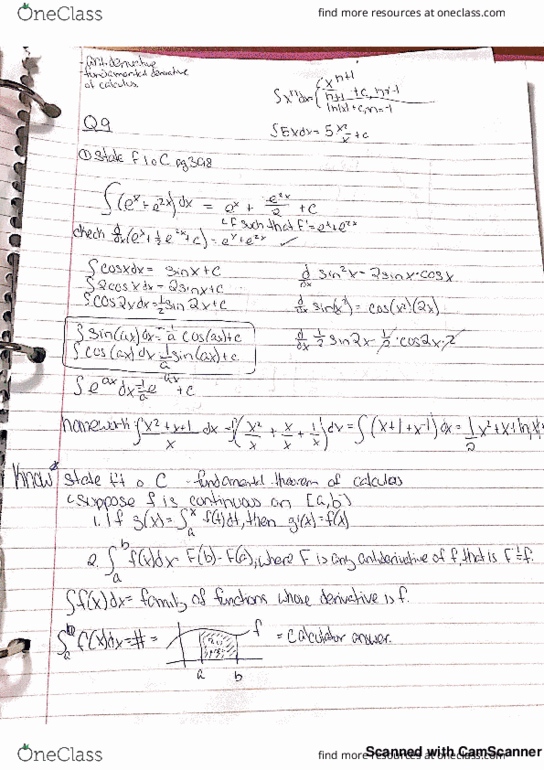 OneClass
find more resources at oneclass.com
- antiderivative
- fundamental derivative
of calculus
∫xⁿdx = { xⁿ⁺¹/n+1 + c, n≠-1
ln|x| + c, n=-1
Q9
∫5xdx = 5 x²/2 + c
① State FToC pg 398
∫(eˣ + e²ˣ)dx = eˣ + e²ˣ/2 + c
↳ F such that F' = eˣ + e²ˣ
check d/dx(eˣ + ½e²ˣ + c) = eˣ + e²ˣ ✓
∫cosxdx = sinx + c
d/dx sin²x = 2sinx·cosx
∫2cosxdx = 2sinx + c
∫cos2xdx = ½ sin2x + c
d/dx sin(x²) = cos(x²)(2x)
∫sin(ax)dx = -1/a cos(ax) + c
d/dx ½ sin2x = ½·cos2x·2
∫cos(ax)dx = 1/a sin(ax) + c
∫eᵃˣdx = 1/a eᵃˣ + c
homework: ∫ x²+x+1/x dx = ∫(x²/x + x/x + 1/x)dx = ∫(x + 1 + x⁻¹)dx = ½x² + x + ln|x|
Know* State FT o C - fundamental theorem of calculus
↳ Suppose f is continuous on [a,b]
1. If g(x) = ∫ₐˣ f(t)dt, then g'(x) = f(x)
2. ∫ₐᵇ f(x)dx = F(b) - F(a), where F is any antiderivative of f, that is F' = f.
∫f(x)dx = family of functions whose derivative is f.
∫ₐᵇ f(x)dx = # = f = calculator answer.
a b
Scanned with CamScanner
OneClass
find more resources at oneclass.com